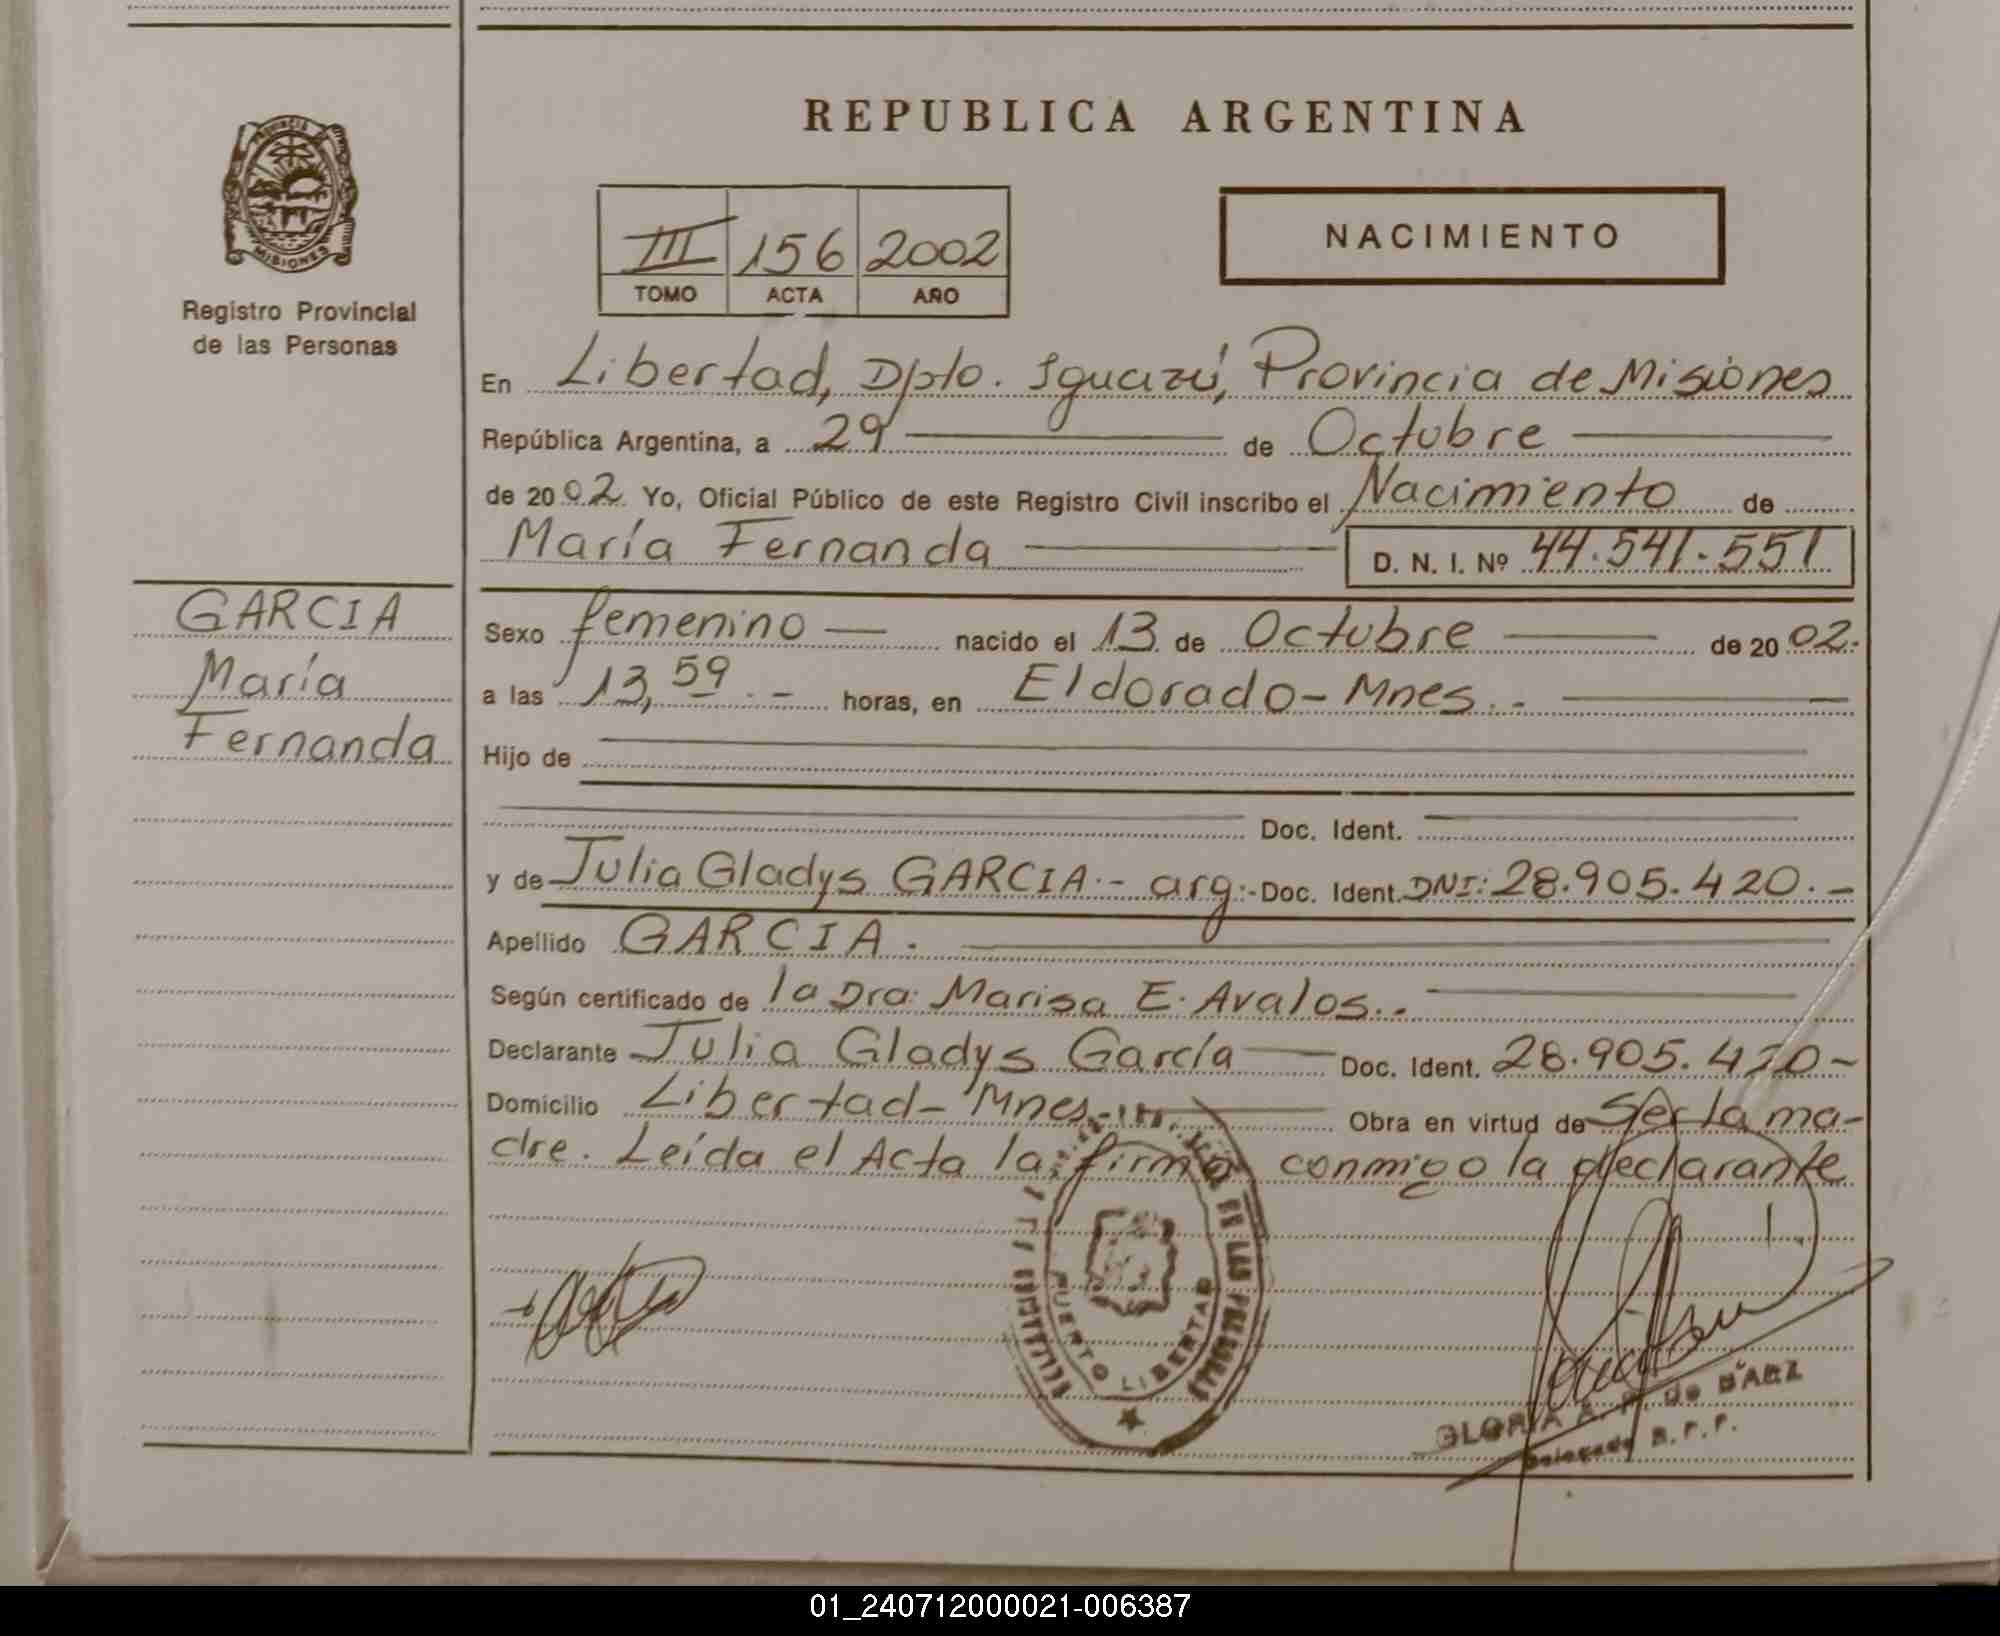 REPUBLICA ARGENTINA
PROVINCIA DE
MISIONES
Registro Provincial
de las Personas
III 156 2002
TOMO ACTA AÑO
NACIMIENTO
En Libertad, Dpto. Iguazú, Provincia de Misiones
República Argentina, a 29 de Octubre
de 2002 Yo, Oficial Público de este Registro Civil inscribo el Nacimiento de
María Fernanda D. N. I. Nº 44.541.551
GARCIA
María
Fernanda
Sexo femenino nacido el 13 de Octubre de 2002.
a las 13,59.- horas, en Eldorado - Mnes..-
Hijo de
Doc. Ident.
y de Julia Gladys GARCIA.- arg.- Doc. Ident. DNI: 28.905.420.-
Apellido GARCIA.
Según certificado de la Dra: Marisa E. Avalos..-
Declarante Julia Gladys García Doc. Ident. 28.905.420-
Domicilio Libertad - Mnes.- Obra en virtud de Ser la ma-
dre. Leída el Acta la firma conmigo la declarante
DE LAS PERSONAS
PUERTO LIBERTAD
GLORIA A. de BAEZ
Delegada R.P.P.
01_240712000021-006387